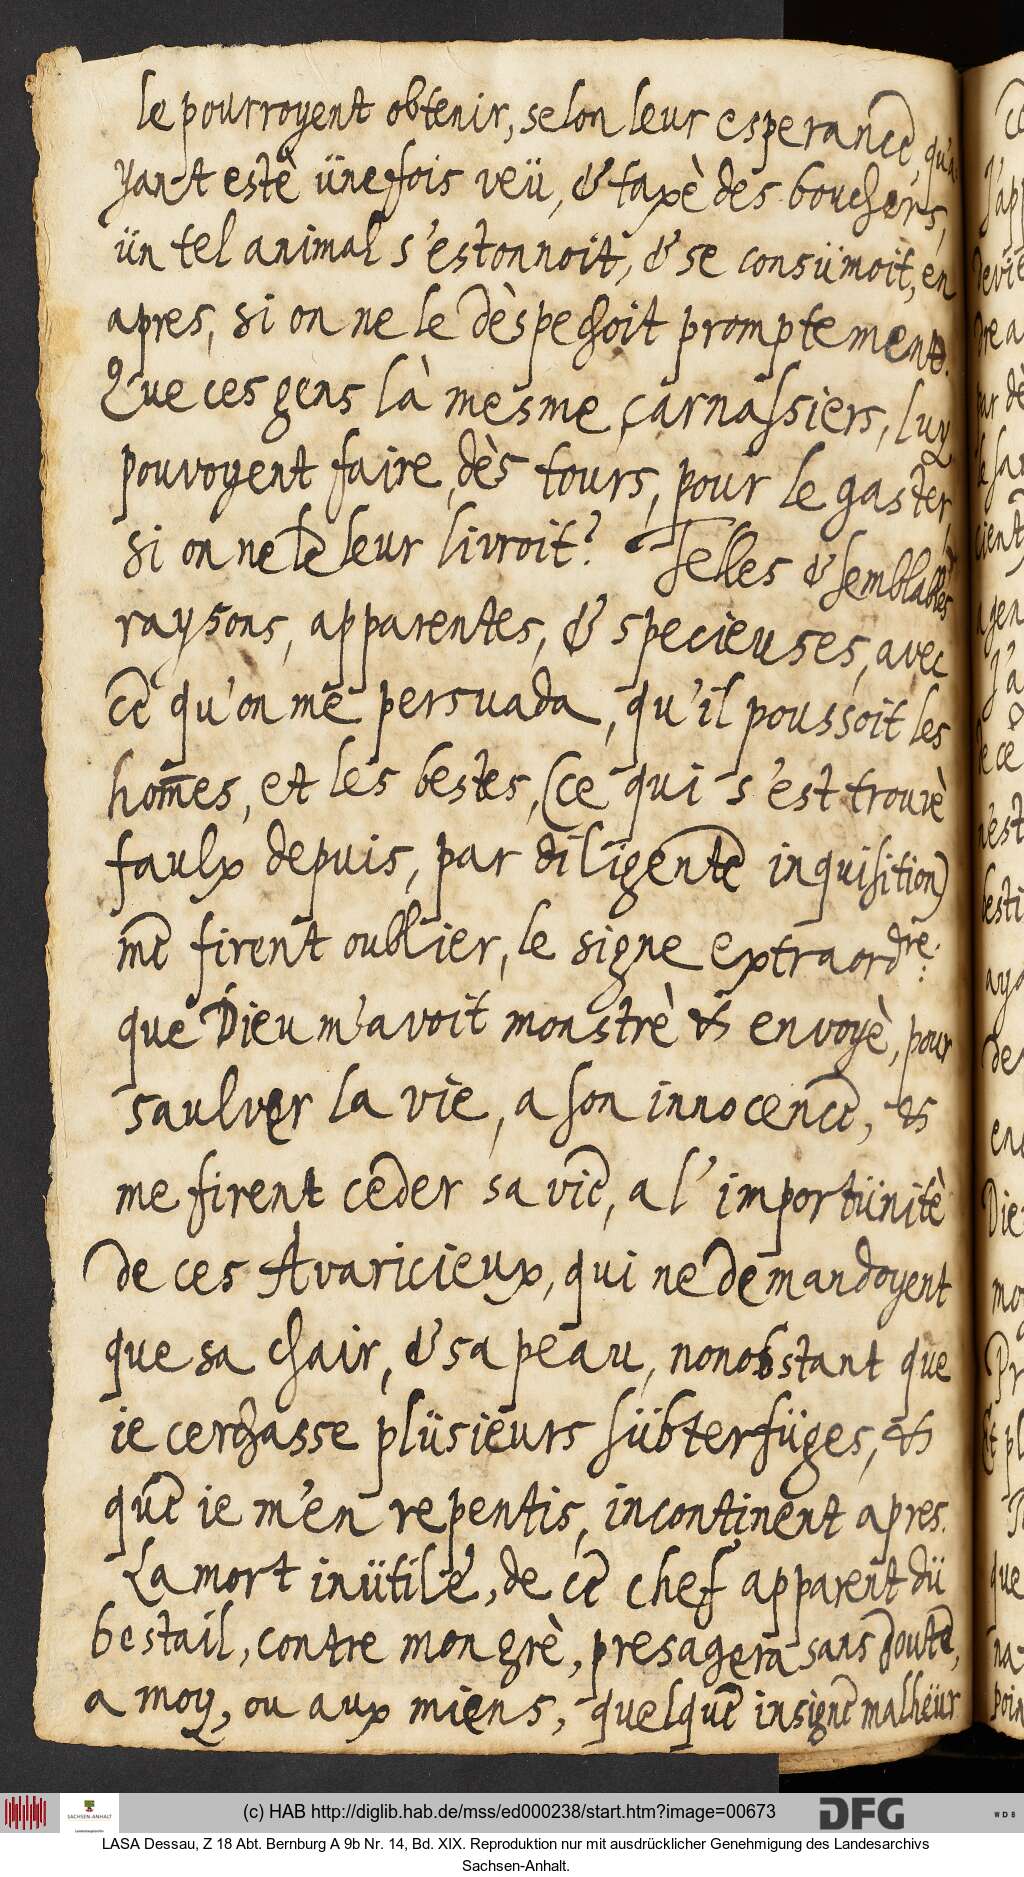 le pourroyent obtenir, selon leur esperance, qu'a-
yant estè ünefois veü, & taxè des bouchers,
ün tel animal s'estonnoit, & se consümoit, en
apres, si on ne le dèspechoit promptement.
Que ces gens là mesme, carnassiers, luy
pouvoyent faire, dès tours, pour le gaster,
si on ne le leur livroit? Telles & semblables
raysons, apparentes, & specieuses, avec
ce qu'on me persuada, qu'il poussoit les
hom̅es, et les bestes, (ce qui s'est trouvè
faulx depuis, par diligente inquisition)
me firent oublier, le signe extraordre:
que Dieu m'avoit monstrè & envoyè, pour
saulver la vie, a son innocence, &
me firent ceder sa vie, a l'importünitè
de ces Avaricieux, qui ne demandoyent
que sa chair, & sa peau, nonobstant que
ie cerchasse plüsieurs sübterfüges, &
que ie m'en repentis, incontinent apres.
La mort inütile, de ce chef apparent dü
bestail, contre mon grè, presagera sans doute,
a moy, ou aux miens, quelque insigne malheür
(c) HAB http://diglib.hab.de/mss/ed000238/start.htm?image=00673
DFG
SACHSEN-ANHALT
LASA Dessau, Z 18 Abt. Bernburg A 9b Nr. 14, Bd. XIX. Reproduktion nur mit ausdrücklicher Genehmigung des Landesarchivs
Sachsen-Anhalt.